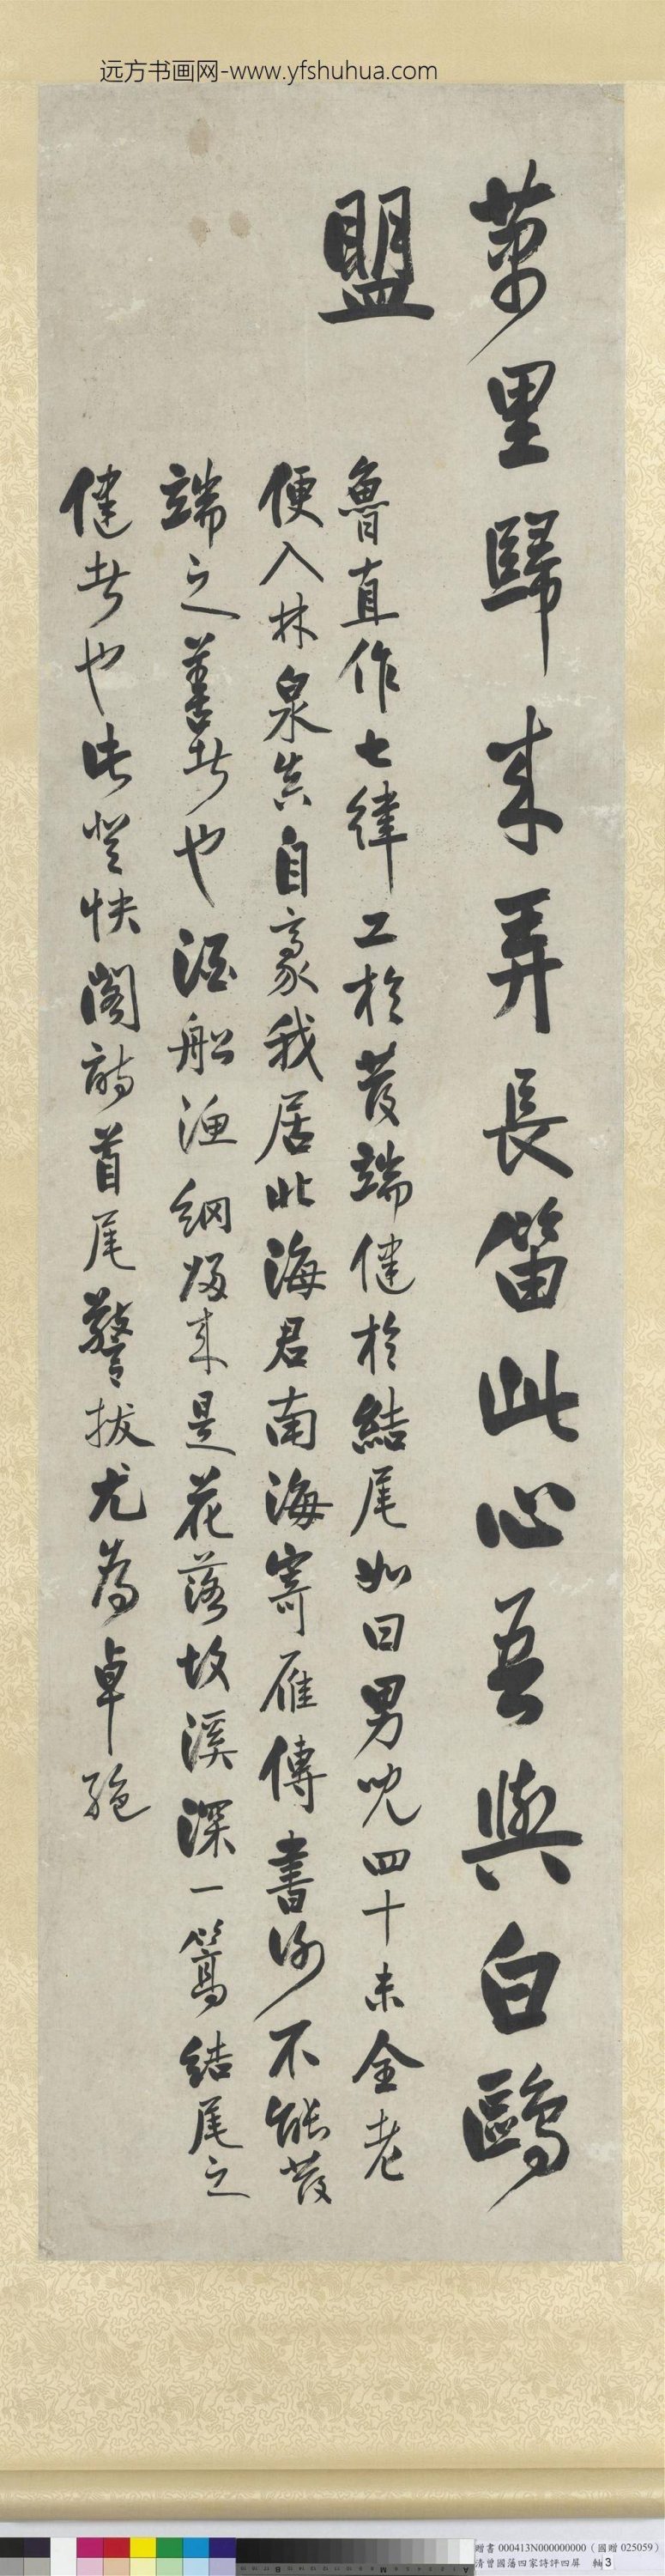 远方书画网-www.yfshuhua.com
萬里歸来弄長笛此心吾與白鷗
盟
魯直作七律工於發端健於結尾如曰男児四十未全老
便入林泉真自豪我居北海君南海寄雁傳書謝不能發
端之善者也酒船漁網歸来是花落故溪深一篙結尾之
健者也此登快閣詩首尾警拔尤為卓絶
贈書 000413N000000000 (國贈 025059)
清曾國藩四家詩評四屏 軸3